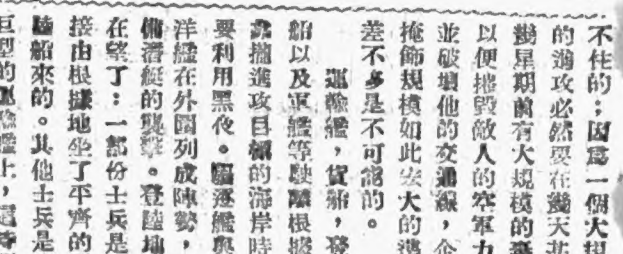 不住的；因爲一個大規
的進攻必然要在幾天甚
幾星期前有大規模的轟
以便摧毀敵人的空軍力
並破壞他的交通線，企
掩飾規模如此宏大的進
差不多是不可能的。
運輸艦，貨船，登
船以及軍艦等駛離根據
靠攏進攻目標的海岸時
要利用黑夜。驅逐艦與
洋艦在外圍列成陣勢，
備潛艇的襲擊。登陸地
在望了：一部份士兵是
接由根據地坐了平齊的
陸船來的。其他士兵是
巨型的運輸艦上，